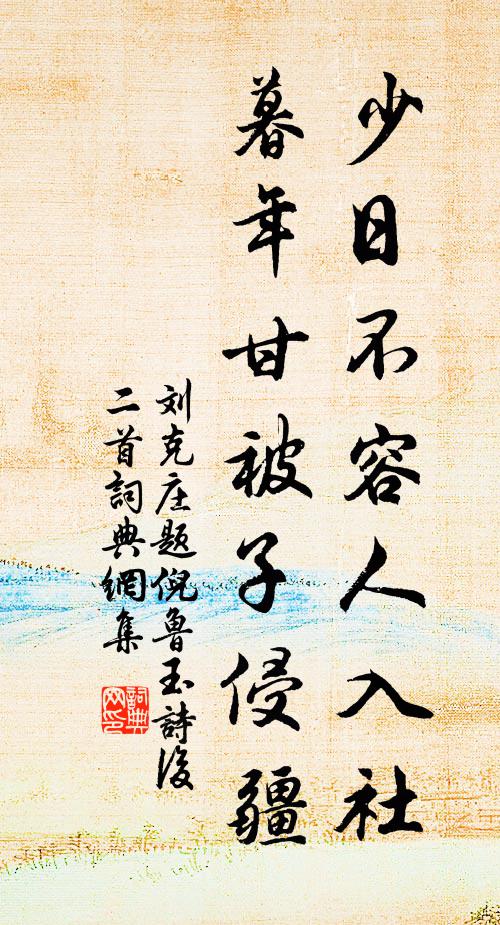 少日不容人入社
暮年甘被子侵疆
刘克庄题倪鲁玉詩後
二首詞典網集
詞典网印